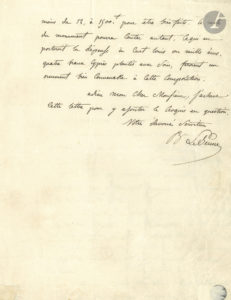 moins de 12, à 1500.f pour être bien faite. le reste
du monument pourra coûter autant. ce qui en
portant la dépense à cent louis ou mille écus,
quatre beaux Cyprès plantés avec soin, feraient un
ornement très convenable à cette Composition.
adieu mon cher Monsieur, j'arrête
cette lettre pour y ajouter le croquis en question,
Votre dévoué Serviteur